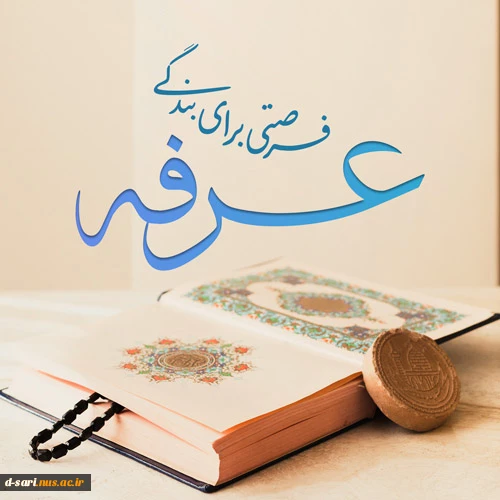 فرصتی برای بندگی
عرفه
d-sari.nus.ac.ir